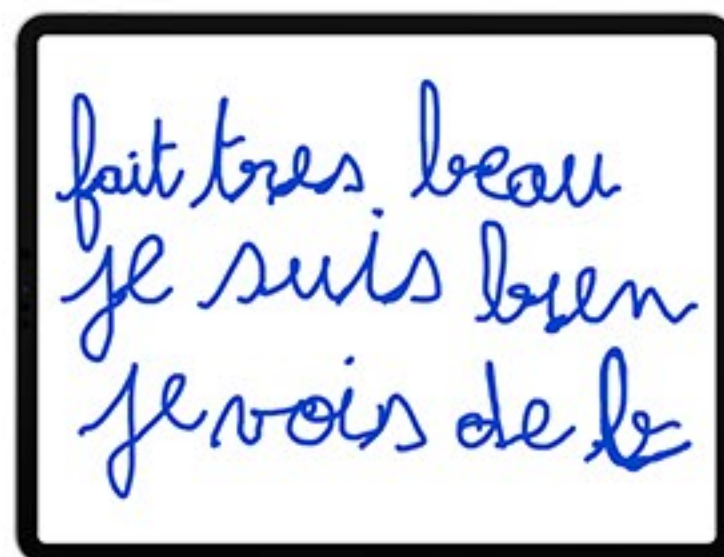 fait tres beau
je suis bien
je vois de b